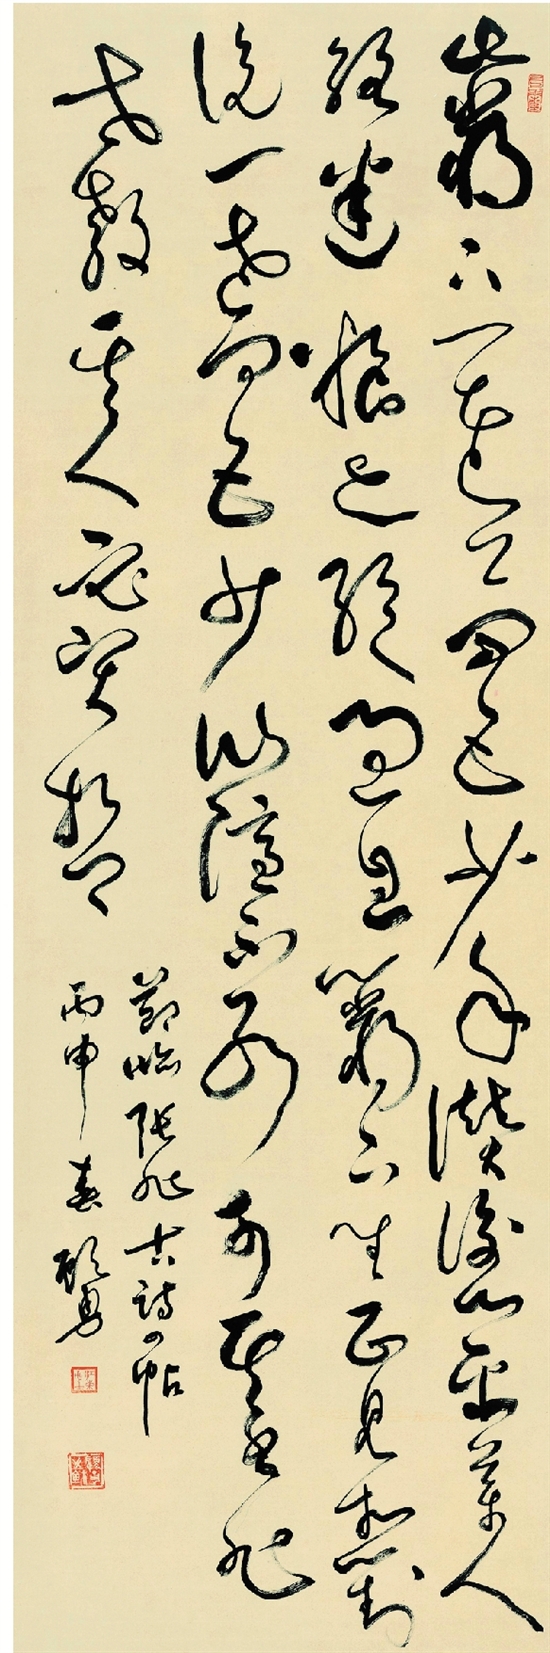 巖下一老公四五少年讚衡山采藥人
路迷粮亦絕過息巖下坐正見相對
說一老四五少仙隱不別可其書非
世教其人必賢哲
節臨張旭古詩四帖
丙申春顧勇